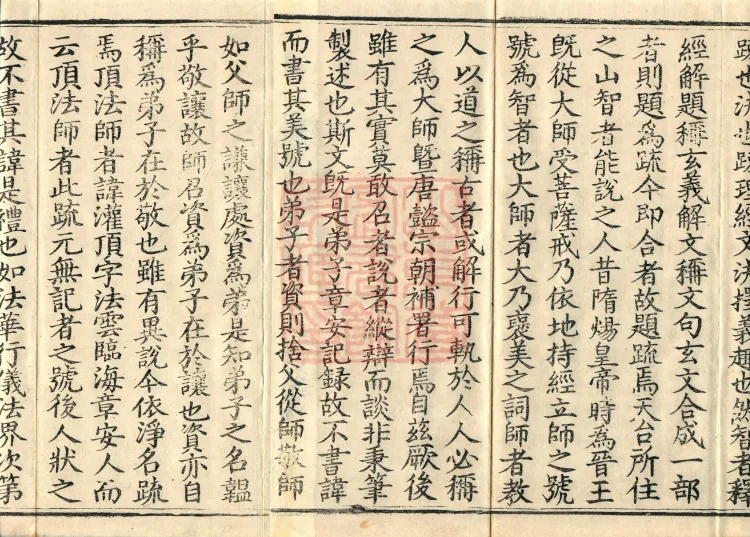 疏也法也疏理經文法擇義趣也然智者釋
經解題稱玄義解文稱文句玄文合成一部
者則題為疏今即合者故題疏焉天台所住
之山智者能說之人昔隋煬皇帝時為晉王
旣從大師受菩薩戒乃依地持經立師之號
號為智者也大師者大乃褒美之詞師者教
人以道之稱古者或解行可軌於人人必稱
之為大師曁唐懿宗朝補署行焉自茲厥後
雖有其實莫敢召者說者縱辯而談非秉筆
製述也斯文旣是弟子章安記録故不書諱
而書其美號也弟子者資則捨父從師敬師
如父師之謙讓處資為弟是知弟子之名韞
乎敬讓故師召資為弟子在於讓也資亦自
稱為弟子在於敬也雖有異說今依淨名疏
焉頂法師者諱灌頂字法雲臨海章安人而
云頂法師者此疏元無記者之號後人狀之
故不書其諱是禮也如法華行儀法界次第